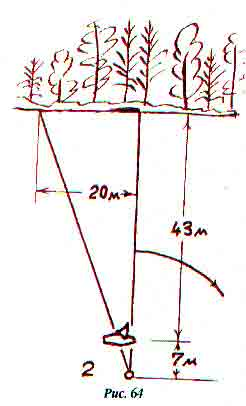 20м
43м
7м
2
Рис. 64